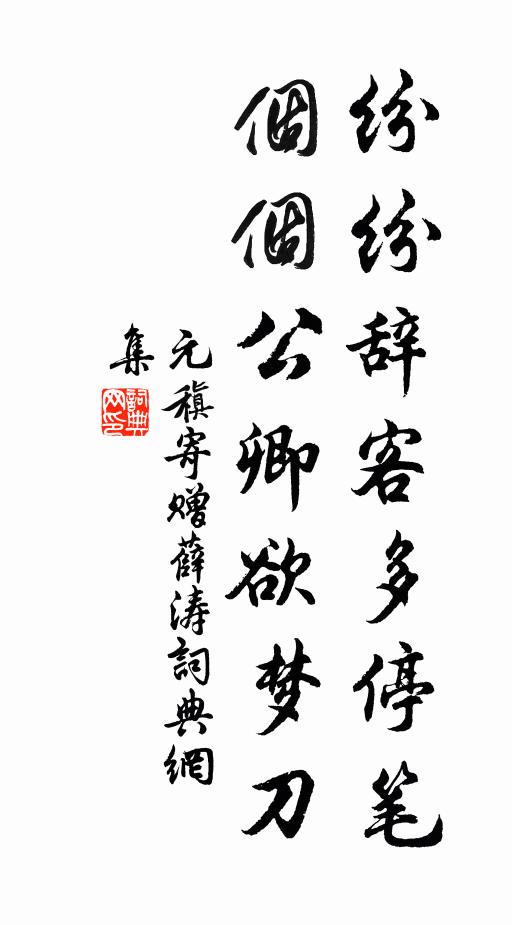 纷纷辞客多停笔
個個公卿欲梦刀
元稹寄赠薛涛詞典網
集
詞典網印